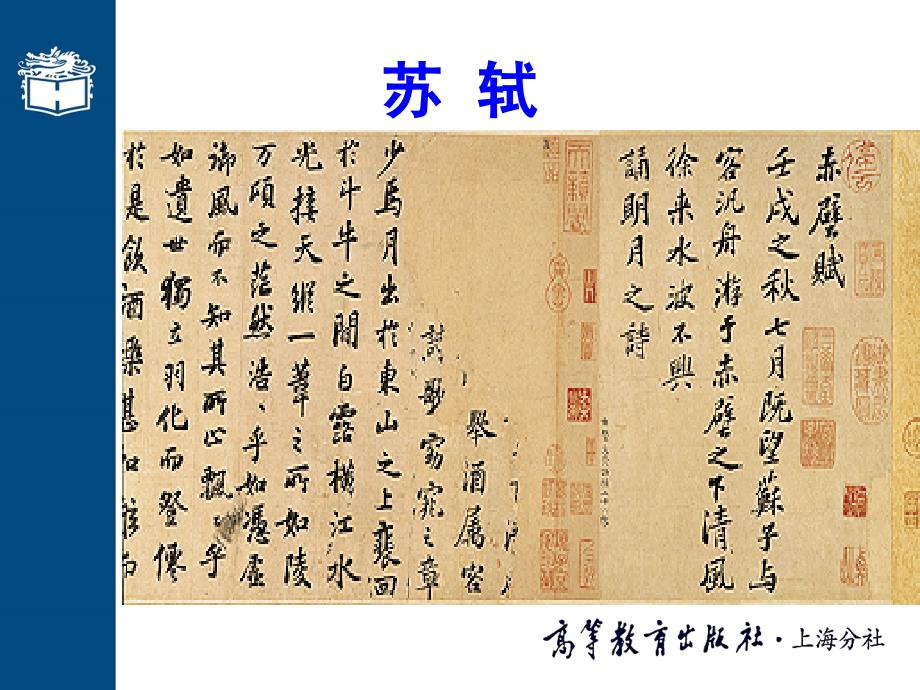 苏 轼
赤壁賦
壬戌之秋七月既望蘇子与
客汎舟游于赤壁之下清風
徐来水波不興
誦明月之詩
舉酒屬客
歌窈窕之章
少焉月出於東山之上裵回
於斗牛之間白露橫江水
光接天縱一葦之所如陵
万頃之茫然浩〻乎如憑虛
御風而不知其所止飄〻乎
如遺世獨立羽化而登僊
於是飲酒樂甚扣舷而
高等教育出版社·上海分社